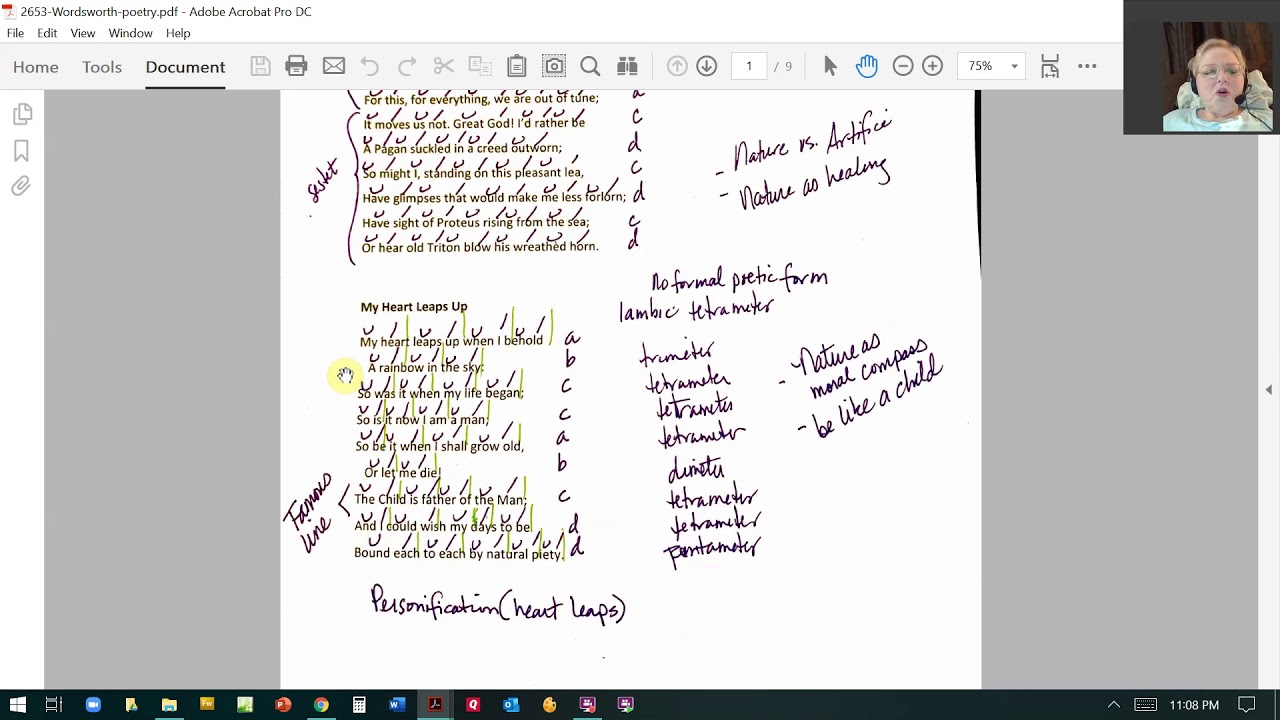 2653-Wordsworth-poetry.pdf - Adobe Acrobat Pro DC
File Edit View Window Help
Home Tools Document 1 / 9 75%
For this, for everything, we are out of tune; a
It moves us not. Great God! I'd rather be c
A Pagan suckled in a creed outworn; d
So might I, standing on this pleasant lea, c
Have glimpses that would make me less forlorn; d
Have sight of Proteus rising from the sea; c
Or hear old Triton blow his wreathèd horn. d
sestet
- Nature vs. Artifice
- Nature as healing
No formal poetic form
Iambic tetrameter
My Heart Leaps Up
My heart leaps up when I behold a
A rainbow in the sky: b trimeter
So was it when my life began; c tetrameter
So is it now I am a man; c tetrameter
So be it when I shall grow old, a tetrameter
Or let me die! b dimeter
The Child is father of the Man; c tetrameter
And I could wish my days to be d tetrameter
Bound each to each by natural piety. d pentameter
- Nature as
moral compass
- be like a child
Famous
line
Personification (heart leaps)
11:08 PM